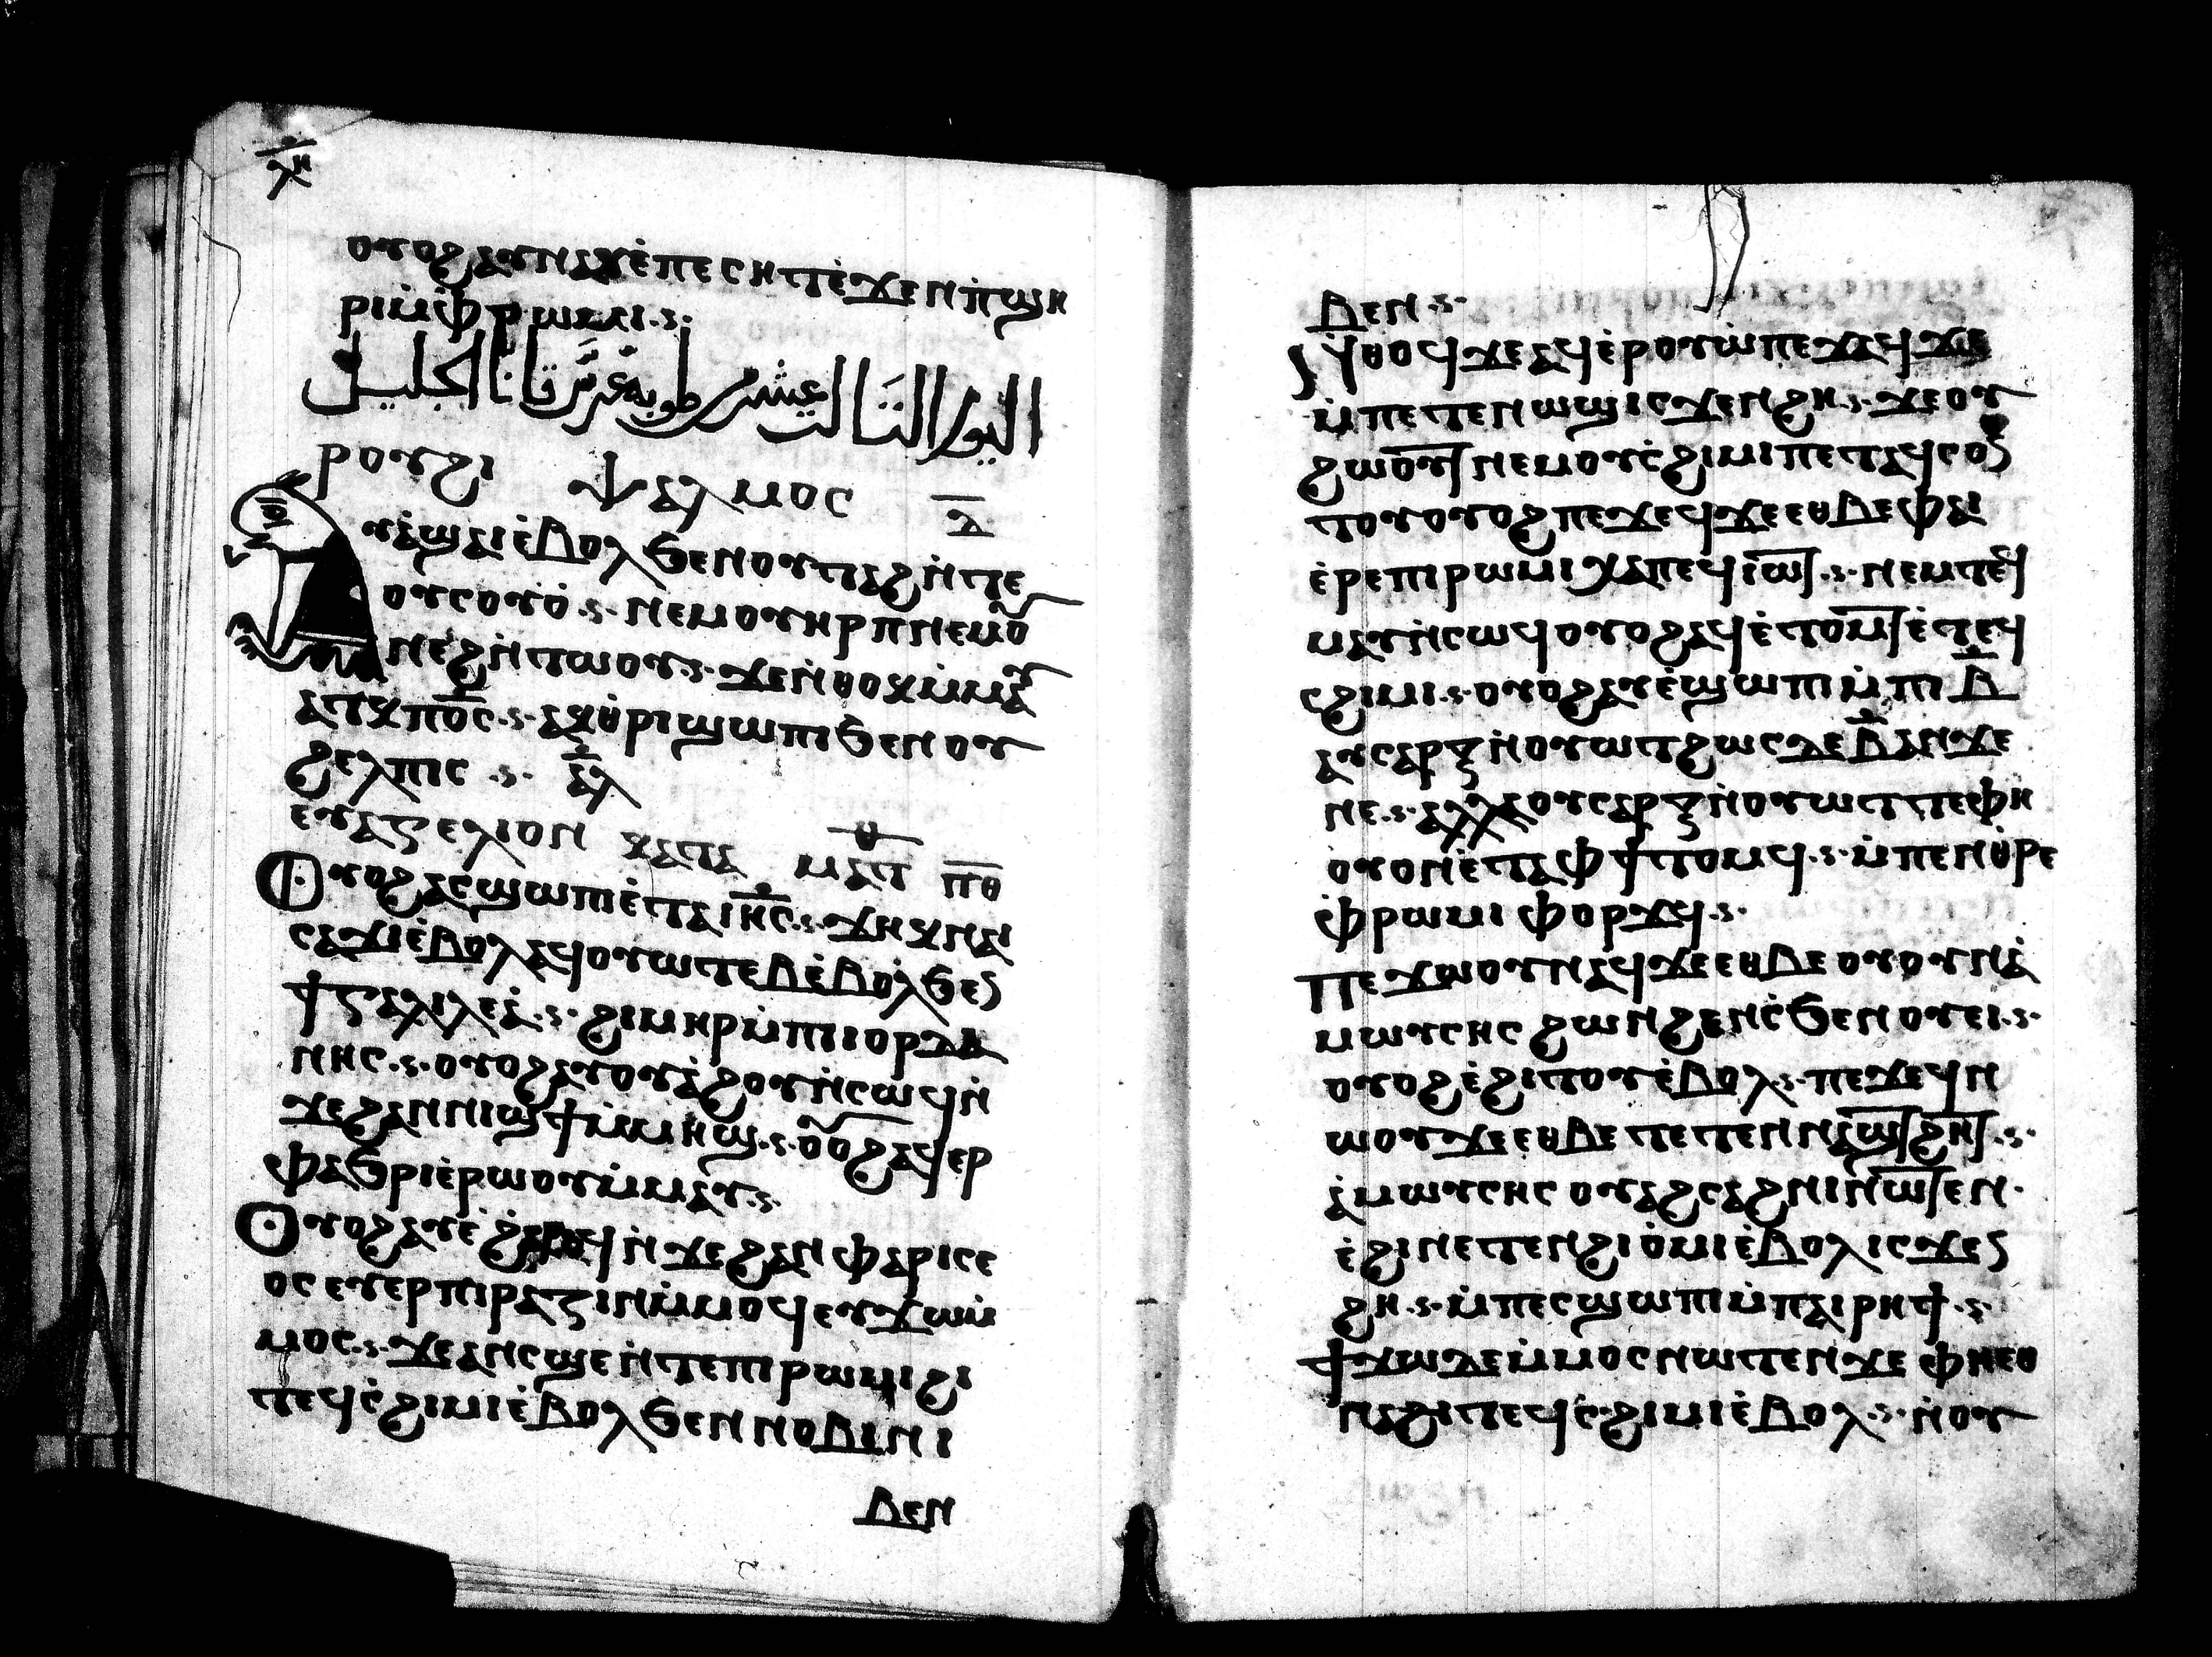 ⲗⲏ
ⲟⲩⲟϩ ⲁⲩⲛⲁⲩ ⲉ̀ⲡⲉⲥⲏⲧ ⲉ̀ϫⲉⲛ ⲡ̀ϣⲏ
ⲣⲓ ⲙ̀ⲫⲣⲱⲙⲓ
اليوم الثالث عشر طوبه عرس قانا الجليل
ⲣⲟⲩϩⲓ ⲯⲁⲗⲙⲟⲥ ⲇ
ⲩⲁ̀ϣⲁⲓ ⲉ̀ⲃⲟⲗ ϧⲉⲛ ⲟⲩⲧⲁϩ ⲛ̀ⲧⲉ
ⲟⲩⲥⲟⲩⲟ̀ ⲛⲉⲙ ⲟⲩⲏⲣⲡ ⲛⲉⲙ ⲟⲩ
ⲛⲉϩ ⲛ̀ⲧⲱⲟⲩ ϫⲉ ⲛ̀ⲑⲟⲕ ⲙ̀ⲙⲁⲩ
ⲁⲧⲕ ⲡⲟ̅ⲥ̅ ⲁⲕⲑ̀ⲣⲓϣⲱⲡⲓ ϧⲉⲛ ⲟⲩ
ϩⲉⲗⲡⲓⲥ ⲁⲗ
ⲉⲩⲁⲅⲅⲉⲗⲓⲟⲛ ⲕⲁⲧⲁ ⲙⲁⲧⲑ ⲡⲑ
ⲟⲩⲟϩ ⲁⲥϣⲱⲡⲓ ⲉ̀ⲧⲁ ⲓⲏ̅ⲥ̅ ϫⲏⲕ ⲛⲁⲓ
ⲥⲁϫⲓ ⲉ̀ⲃⲟⲗ ⲁϥⲟⲩⲱⲧⲉⲃ ⲉ̀ⲃⲟⲗ ϧⲉⲛ
ϯⲅⲁⲗⲓⲗⲉⲁ̀ ϩⲓⲙⲏⲣ ⲙ̀ⲡⲓⲓⲟⲣⲇⲁ
ⲛⲏⲥ ⲟⲩⲟϩ ⲁⲩⲟⲩⲁ̀ϩⲟⲩ ⲛ̀ⲥⲱϥ ⲛ̀
ϫⲉ ϩⲁⲛⲛⲓϣϯ ⲙ̀ⲙⲏϣ ⲟⲩⲟϩ ⲁϥⲉⲣ
ⲫⲁϧⲣⲓ ⲉ̀ⲣⲱⲟⲩ ⲙ̀ⲙⲁⲩ
ⲟⲩⲟϩ ⲁⲩⲉ̀ ϩⲁⲣⲟϥ ⲛ̀ϫⲉ ϩⲁⲛ ⲫⲁⲣⲓⲥⲉ
ⲟⲥ ⲉⲩⲉⲣⲡⲓⲣⲁⲍⲓⲛ ⲙ̀ⲙⲟϥ ⲉⲩϫⲱ ⲙ̀
ⲙⲟⲥ ϫⲉ ⲁⲛ ⲥϣⲉ ⲛ̀ⲧⲉ ⲡⲓⲣⲱⲙⲓ ϩⲓ
ⲧⲉϥⲥ̀ϩⲓⲙⲓ ⲉ̀ⲃⲟⲗ ϧⲉⲛ ⲛⲟⲃⲓ ⲛⲓ
ⲃⲉⲛ
ⲃⲉⲛ
ⲛⲑⲟϥ ϫⲉ ⲁϥⲉ̀ⲣⲟⲩⲱ̀ ⲡⲉϫⲁϥ ϫⲉ
ⲙ̀ⲡⲉⲧⲉⲛⲱϣ ⲓⲥϫⲉⲛ ϩⲏ ϫⲉ ⲟⲩ
ϩⲱⲟⲩⲧ ⲛⲉⲙ ⲟⲩⲥ̀ϩⲓⲙⲓ ⲡⲉⲧⲁϥⲥⲟⲛ
ⲧⲟⲩ ⲟⲩⲟϩ ⲡⲉϫⲉϥ ϫⲉ ⲉⲑⲃⲉ ⲫⲁⲓ
ⲉ̀ⲣⲉ ⲡⲓⲣⲱⲙⲓ ⲭⲁ ⲡⲉϥⲓⲱⲧ ⲛⲉⲙ ⲧⲉϥ
ⲙⲁⲩ ⲛ̀ⲥⲱϥ ⲟⲩⲟϩ ⲁϥⲉ̀ⲧⲟⲙϥ ⲉ̀ⲧⲉϥ
ⲥϩⲓⲙⲓ ⲟⲩⲟϩ ⲁⲩⲉ̀ϣⲱⲡⲓ ⲙ̀ⲡⲓ ⲃ̅
ⲁⲩⲥⲁⲣⲝ ⲛ̀ⲟⲩⲱⲧ ϩⲱⲥⲇⲉ ⲃ̅ ⲁⲛ ϫⲉ
ⲛⲉ ⲁⲗⲗⲁ ⲟⲩⲥⲁⲣⲝ ⲛ̀ⲟⲩⲱⲧ ⲧⲉ ⲫⲏ
ⲟⲩⲟⲛ ⲉ̀ⲧⲁ ⲫϯ ⲧⲟⲙϥ ⲙ̀ⲡⲉⲛⲑ̀ⲣⲉ
ⲫ̀ⲣⲱⲙⲓ ⲫⲟⲣϫϥ
ⲡⲉϫⲱⲟⲩ ⲛⲁϥ ϫⲉ ⲉⲑⲃⲉ ⲟⲩ ⲟⲩⲛ ⲁ̀
ⲙⲱⲩⲥⲏⲥ ϩⲱⲛϩⲉⲛⲥ̀ ϧⲉⲛ ⲟⲩⲉⲓ
ⲟⲩⲟϩ ⲉ̀ϩⲓⲧⲟⲩ ⲉ̀ⲃⲟⲗ ⲡⲉϫⲉϥ ⲛ
ⲱⲟⲩ ϫⲉ ⲉⲑⲃⲉ ⲧⲉⲧⲉⲛⲛⲁϣⲧϩⲏⲧ
ⲁ̀ ⲙⲱⲩⲥⲏⲥ ⲟⲩⲁϩⲥⲁϩⲛⲓ ⲛⲱⲧⲉⲛ
ⲉ̀ϩⲓ ⲛⲉⲧⲉⲛϩⲓⲟ̀ⲙⲓ ⲉ̀ⲃⲟⲗ ⲓⲥϫⲉⲛ
ϩⲏ ⲙ̀ⲡⲉⲥϣⲱⲡⲓ ⲙ̀ⲡⲁⲓⲣⲏϯ
ϯϫⲱ ⲇⲉ ⲙ̀ⲙⲟⲥ ⲛⲱⲧⲉⲛ ϫⲉ ⲫⲏⲉⲑ
ⲛⲁϩⲓ ⲧⲉϥⲥ̀ϩⲓⲙⲓ ⲉ̀ⲃⲟⲗ ⲛ̀ⲟⲩ